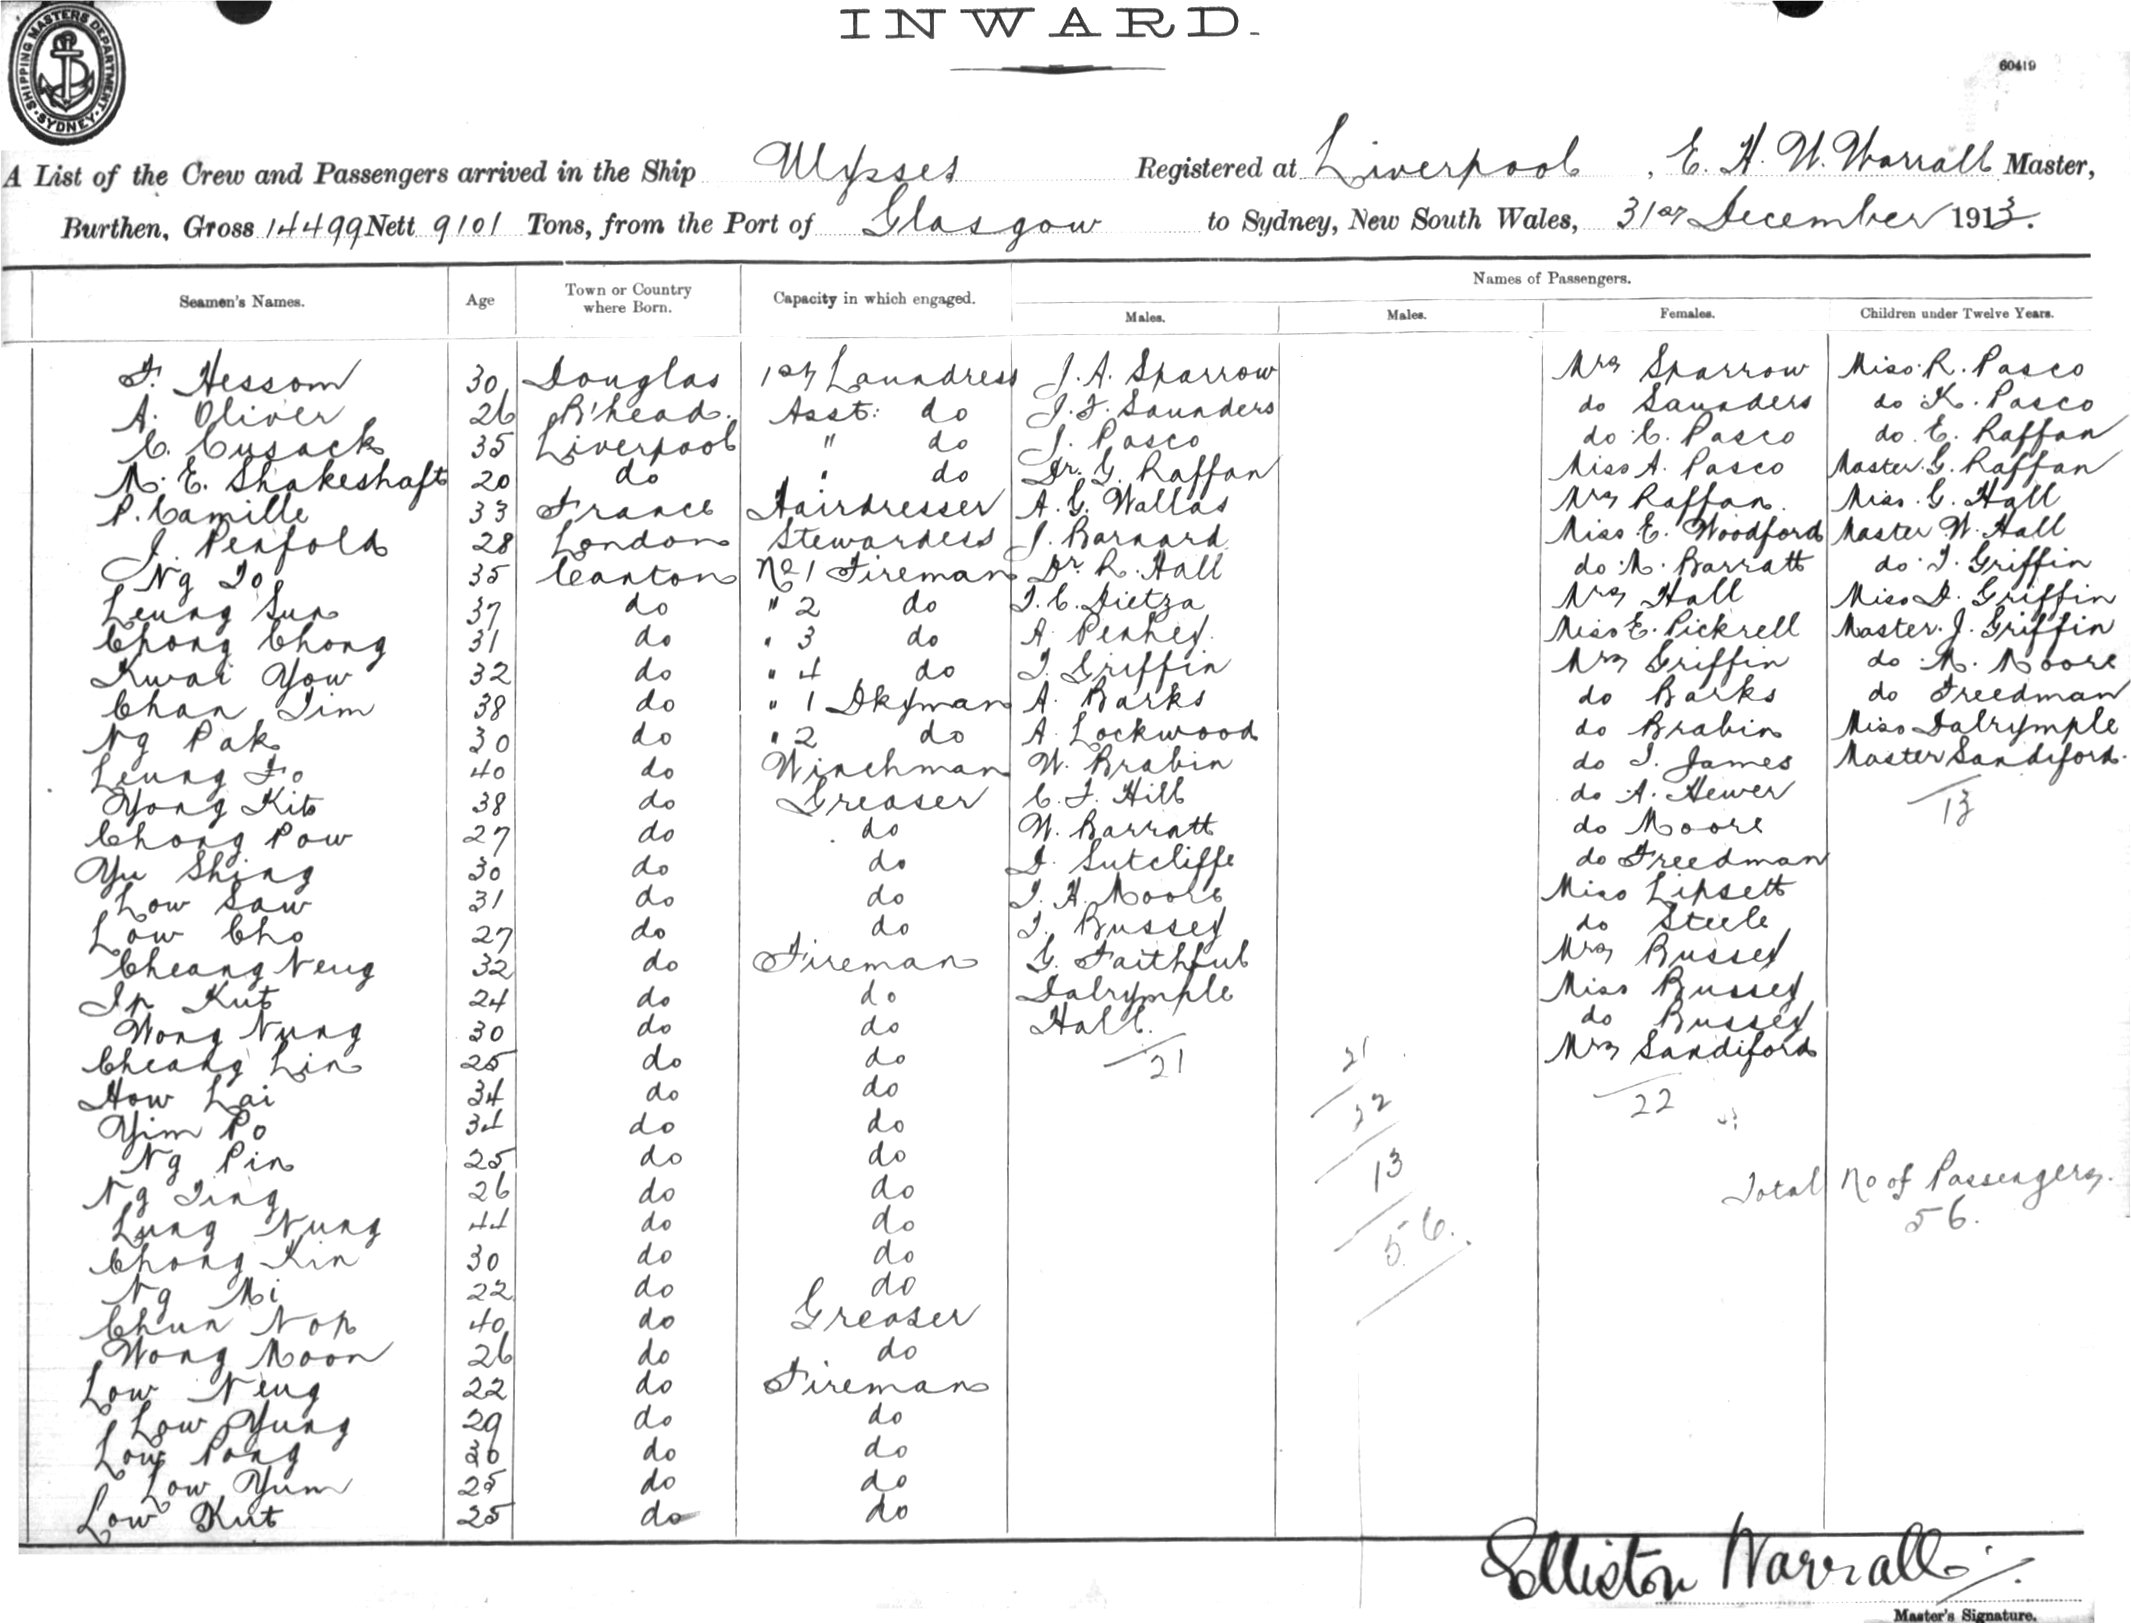 INWARD.
SHIPPING MASTERS DEPARTMENT
SYDNEY
60419
A List of the Crew and Passengers arrived in the Ship Ulysses Registered at Liverpool, E. H. W. Warrall Master,
Burthen, Gross 14499 Nett 9101 Tons, from the Port of Glasgow to Sydney, New South Wales, 31st December 1913.
Names of Passengers.
Seamen's Names. Age Town or Country where Born. Capacity in which engaged. Males. Males. Females. Children under Twelve Years.
F. Hessom 30 Douglas 1st Laundress J. A. Sparrow Mrs Sparrow Miss R. Pasco
A. Oliver 26 B'head. Asst: do J. F. Saunders do Saunders do K. Pasco
C. Cusack 35 Liverpool " do J. Pasco do C. Pasco do. E. Raffan
M. E. Shakeshaft 20 do " do Dr. G. Raffan Miss A. Pasco Master G. Raffan
P. Camille 33 France Hairdresser A. G. Wallas Mrs Raffan. Miss. G. Hall
J. Penfold 28 London Stewardess J. Barnard Miss E. Woodford Master W. Hall
Ng To 35 Canton No 1 Fireman Dr. R. Hall do M. Barratt do T. Griffin
Leung Sun 37 do " 2 do T. C. Dietza Mrs Hall Miss D. Griffin
Chong Chong 31 do " 3 do A. Penhey Miss E. Pickrell Master. J. Griffin
Kwai Yow 32 do " 4 do T. Griffin Mrs Griffin do M. Moore
Chan Tim 38 do " 1 Dkyman A. Barks do Barks do Freedman
Ng Pak 30 do " 2 do A. Lockwood do Brabin Miss Dalrymple
Leung Fo 40 do Winchman W. Brabin do T. James Master Sandiford.
Yong Kit 38 do Greaser C. F. Hill do A. Hewer 13
Chong Pow 27 do do W. Barratt do Moore
Yu Shing 30 do do D. Sutcliffe do Freedman
Low Saw 31 do do T. H. Moore Miss Lipsett
Low Cho 27 do do T. Bussey do Steele
Cheang Neug 32 do Fireman G. Faithful Mrs Bussey
Ip Kut 24 do do Dalrymple Miss Bussey
Wong Nung 30 do do Hall. do Bussey
Cheang Lin 25 do do 21 21 Mrs Sandiford
How Lai 34 do do 22 22
Yim Po 34 do do
Ng Pin 25 do do 13
Ng Ting 26 do do Total No of Passengers.
Lung Nung 44 do do 56. 56.
Chong Kin 30 do do
Ng Mi 22 do do
Chun Nop 40 do Greaser
Wong Moon 26 do do
Low Neug 22 do Fireman
Low Yung 29 do do
Low Pong 30 do do
Low Yum 25 do do
Low Kut 25 do do
Elliston Warrall
Master's Signature.